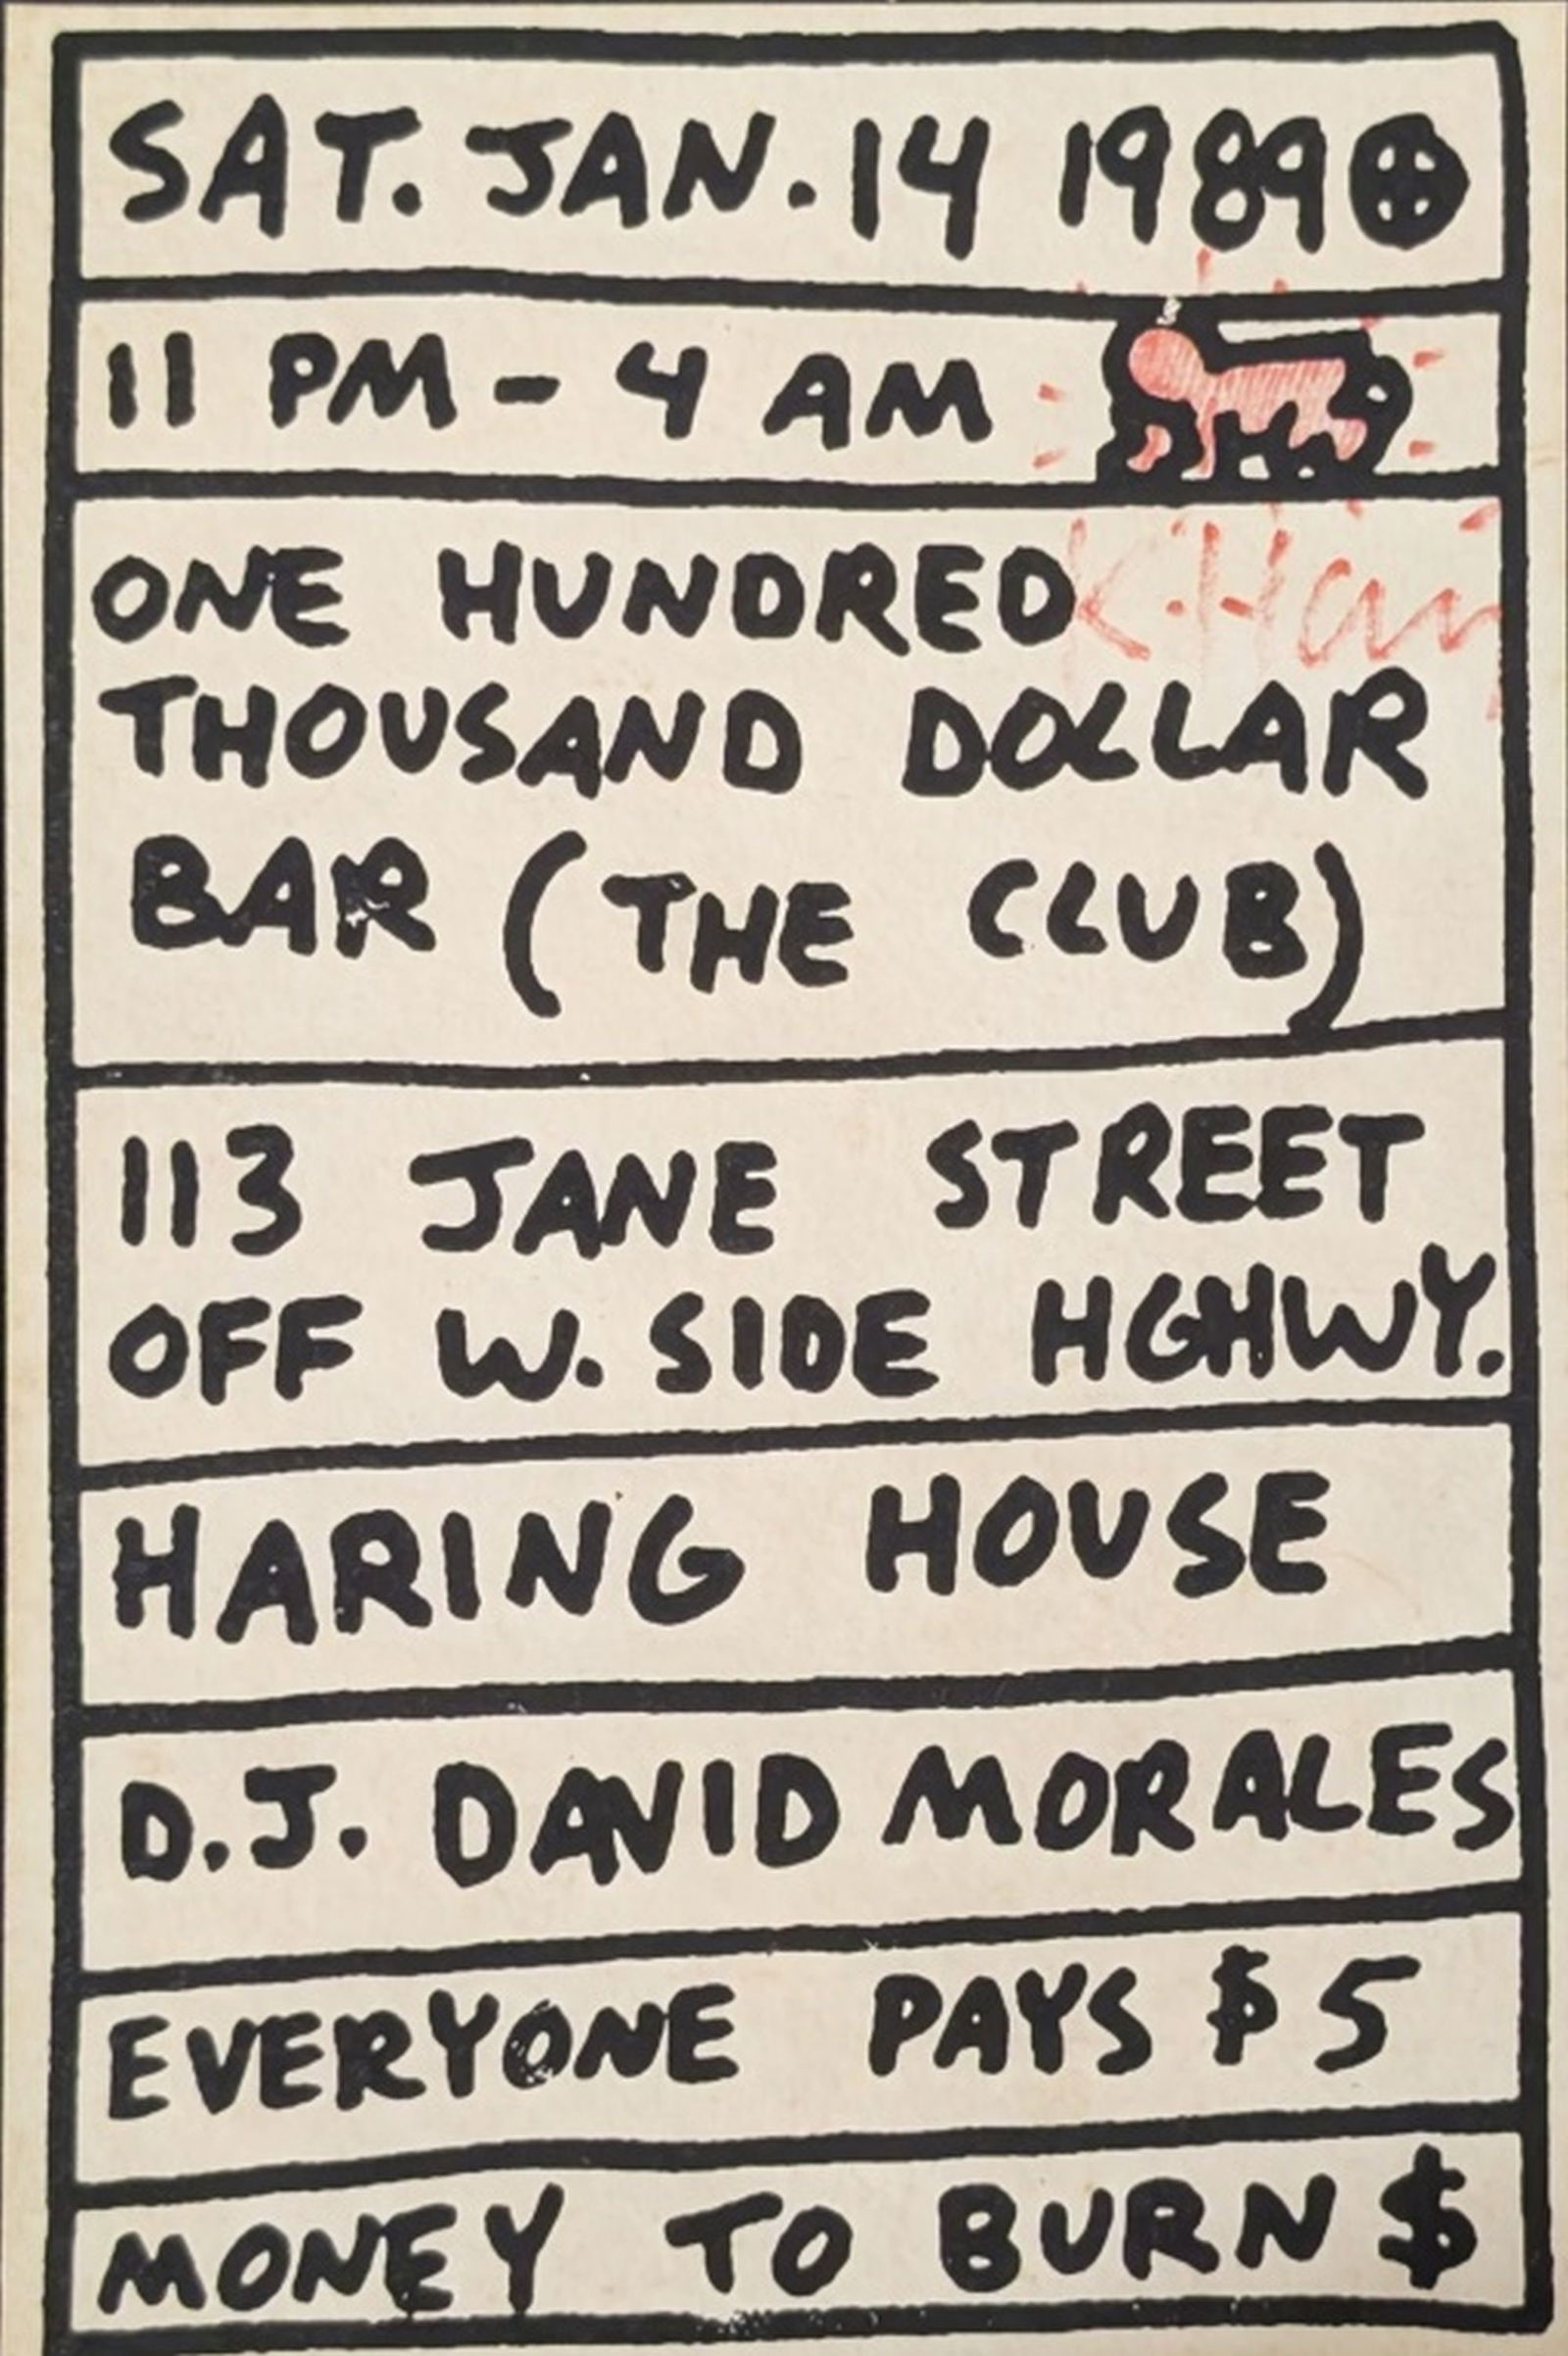 SAT. JAN. 14 1989
11 PM - 4 AM
K. Har
ONE HUNDRED
THOUSAND DOLLAR
BAR (THE CLUB)
113 JANE STREET
OFF W. SIDE HGHWY.
HARING HOUSE
D.J. DAVID MORALES
EVERYONE PAYS $5
MONEY TO BURN $